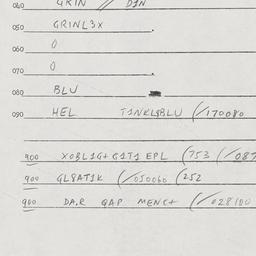 040 GRIN // D1N
050 GRINL3X
060 0
070 0
080 BLU
090 HEL T1NKLSBLU (/170080
900 XOBL1G+G1T1 EPL (753 (/087
900 GLSAT1K (/050060 (252
900 DA,R GAP MENC+ (/028100